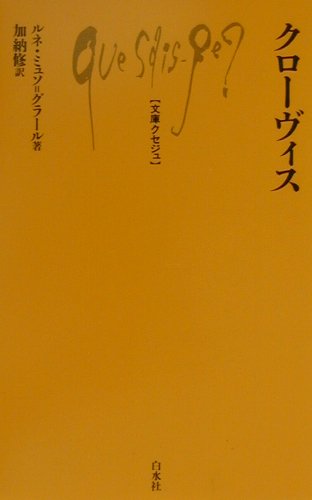 クローヴィス
Que sais-je?
【文庫クセジュ】
ルネ・ミュソ=グラール著
加納修訳
白水社